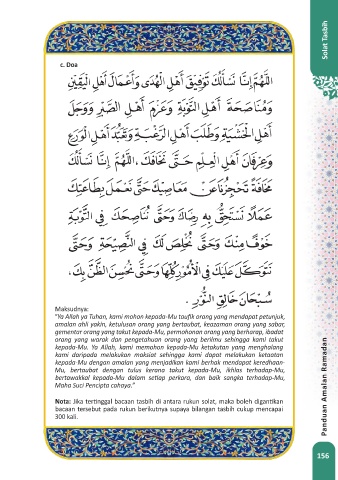 Solat Tasbih
c. Doa
اَللَّهُمَّ إِنَّا نَسْأَلُكَ تَوْفِيقَ أَهْلِ الْهُدَى وَأَعْمَالَ أَهْلِ الْيَقِيْنِ
وَمُنَاصَحَةَ أَهْلِ التَّوْبَةِ وَعَزْمَ أَهْلِ الصَّبْرِ وَوَجَلَ
أَهْلِ الْخَشْيَةِ وَطَلَبَ أَهْلِ الرَّغْبَةِ وَتَعَبُّدَ أَهْلِ الْوَرَعِ
وَعِرْفَانَ أَهْلِ الْعِلْمِ حَتَّى نَخَافَكَ، اَللَّهُمَّ إِنَّا نَسْأَلُكَ
مَخَافَةً تَحْجُزُنَا عَنْ مَعَاصِيْكَ حَتَّى نَعْمَلَ بِطَاعَتِكَ
عَمَلًا نَسْتَحِقُّ بِهِ رِضَاكَ حَتَّى نُنَاصِحَكَ فِي التَّوْبَةِ
خَوْفًا مِنْكَ وَحَتَّى نُخْلِصَ لَكَ فِي النَّصِيْحَةِ وَحَتَّى
نَتَوَكَّلَ عَلَيْكَ فِي الْأُمُوْرِ كُلِّهَا وَحَتَّى نُحْسِنَ الظَّنَّ بِكَ،
سُبْحَانَ خَالِقِ النُّوْرِ .
Maksudnya:
"Ya Allah ya Tuhan, kami mohon kepada-Mu taufik orang yang mendapat petunjuk,
amalan ahli yakin, ketulusan orang yang bertaubat, keazaman orang yang sabar,
gementar orang yang takut kepada-Mu, permohonan orang yang berharap, ibadat
orang yang warak dan pengetahuan orang yang berilmu sehingga kami takut
kepada-Mu. Ya Allah, kami memohon kepada-Mu ketakutan yang menghalang
kami daripada melakukan maksiat sehingga kami dapat melakukan ketaatan
kepada-Mu dengan amalan yang menjadikan kami berhak mendapat keredhaan-
Mu, bertaubat dengan tulus kerana takut kepada-Mu, ikhlas terhadap-Mu,
bertawakkal kepada-Mu dalam setiap perkara, dan baik sangka terhadap-Mu,
Maha Suci Pencipta cahaya."
Nota: Jika tertinggal bacaan tasbih di antara rukun solat, maka boleh digantikan
bacaan tersebut pada rukun berikutnya supaya bilangan tasbih cukup mencapai
300 kali.
Panduan Amalan Ramadan
156